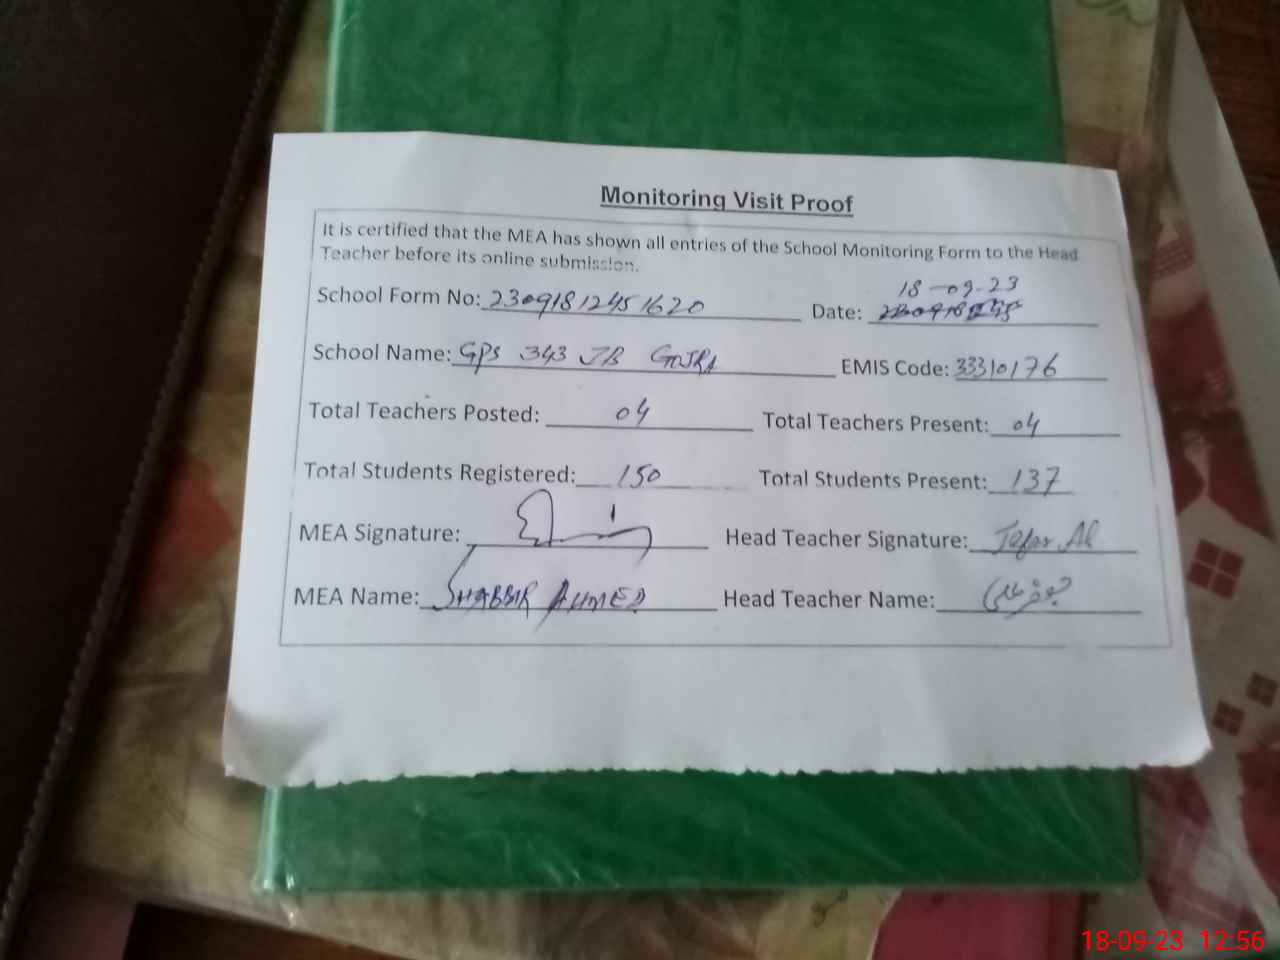 Monitoring Visit Proof
It is certified that the MEA has shown all entries of the School Monitoring Form to the Head
Teacher before its online submission.
18-09-23
School Form No: 230918 12451620 Date:
School Name: GPS 343 JB GOJRA EMIS Code: 33310176
Total Teachers Posted: 04 Total Teachers Present: 04
Total Students Registered: 150 Total Students Present: 137
MEA Signature: Head Teacher Signature: Jafar Al
MEA Name: SHABBIR AHMED Head Teacher Name: جعفر علی
18-09-23 12:56